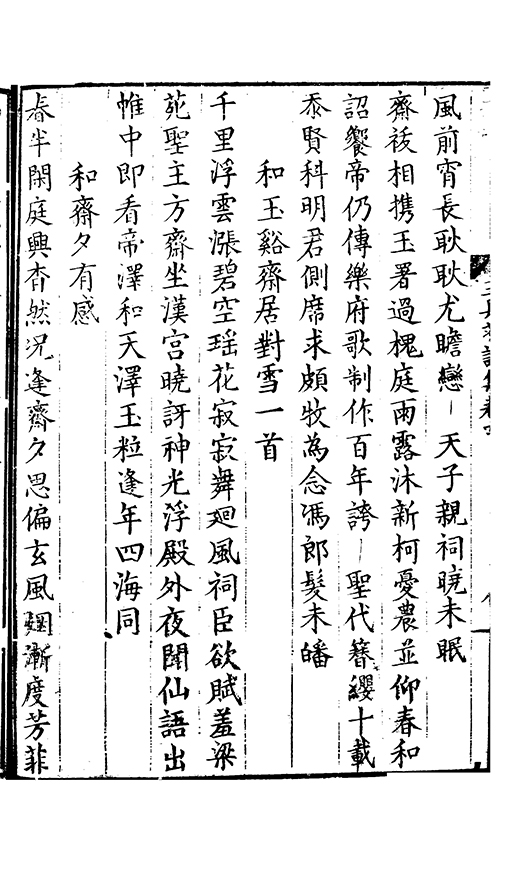 風前宵長耿耿尤瞻戀丨天子親祠曉未眠
齋祓相攜玉署過槐庭雨露沐新柯憂農並仰春和
詔饗帝仍傳樂府歌制作百年誇丨聖代簪纓十載
忝賢科明君側席求頗牧為念馮郎髮未皤
和玉谿齋居對雪一首
千里浮雲漲碧空瑶花寂寂舞廻風祠臣欲賦羞梁
苑聖主方齋坐漢宮曉訝神光浮殿外夜聞仙語出
帷中即看帝澤和天澤玉粒逢年四海同
和齋夕有感
春半閑庭興杳然况逢齋夕思偏玄風𬹃漸度芳菲